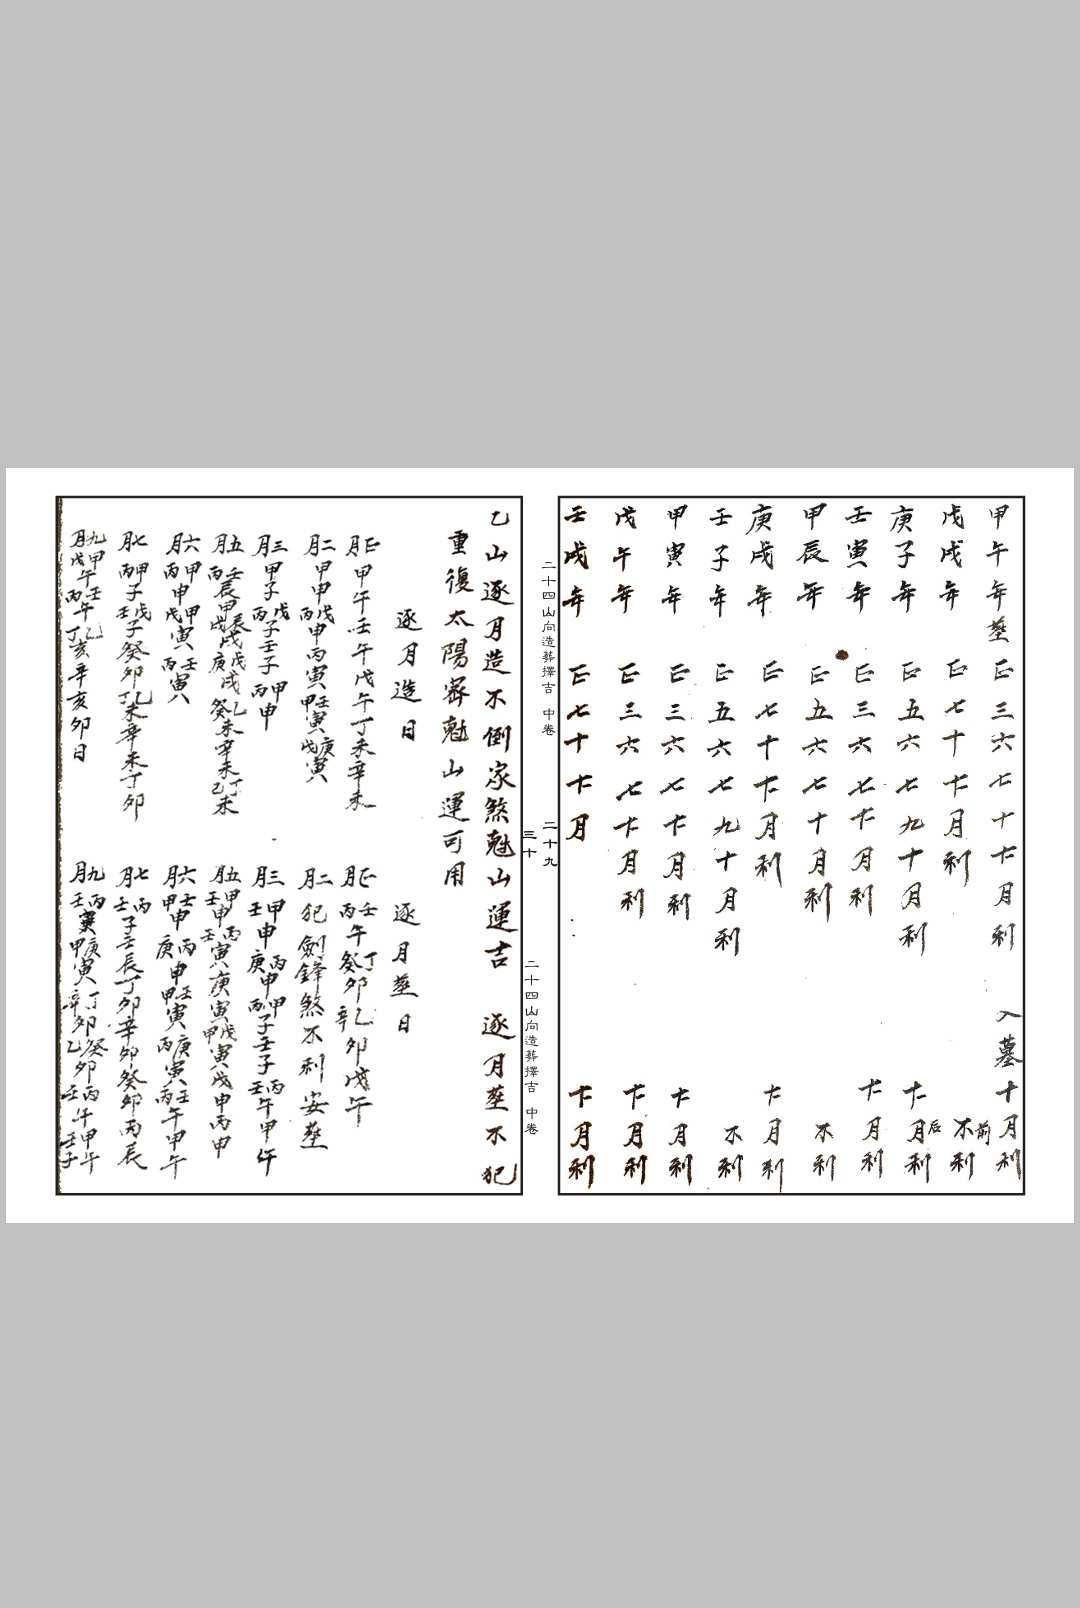 甲午年塟 正三六七十𠦂月利 入墓十月利
戊戌年 正七十𠦂月利 前不利
庚子年 正五六七九十月利 后𠦂月利
壬寅年 正三六七𠦂月利 𠦂月利
甲辰年 正五六七十月利 不利
庚戌年 正七十𠦂月利 𠦂月利
壬子年 正五六七九十月利 不利
甲寅年 正三六七𠦂月利 𠦂月利
戊午年 正三六七𠦂月利 𠦂月利
壬戌年 正七十𠦂月 𠦂月利
二十四山向造葬擇吉 中卷 二十九
三十 二十四山向造葬擇吉 中卷
乙山逐月造不倒家煞尅山運吉 逐月塟不犯
重復太陽窬尅山運可用
逐月造日
正月甲午壬午戊午丁未辛未
二月甲申甲申丙申戊丙寅甲寅壬戊寅庚
三月甲子丙子戊壬子丙申甲
五月丙辰壬甲戌戊辰庚戌戊癸未乙辛未乙未丁
六月丙申甲戊寅甲丙寅壬
七月丙子甲壬子戊癸卯丁未乙辛未丁卯
九月戊午甲丙午壬丁亥乙辛亥卯日
逐月塟日
正月丙午壬癸卯丁辛卯乙戊午
二月犯劍鋒煞不利安塟
三月壬申甲庚申丙丙子甲壬子壬午丙甲午
五月壬申甲壬寅丙庚寅甲寅戊戊申丙申
六月甲申壬庚申丙甲寅壬丙寅庚丙午壬甲午
七月壬子丙壬辰丁卯辛卯癸卯丙辰
九月壬寅丙甲寅庚辛卯丁乙卯癸壬午丙壬子甲午